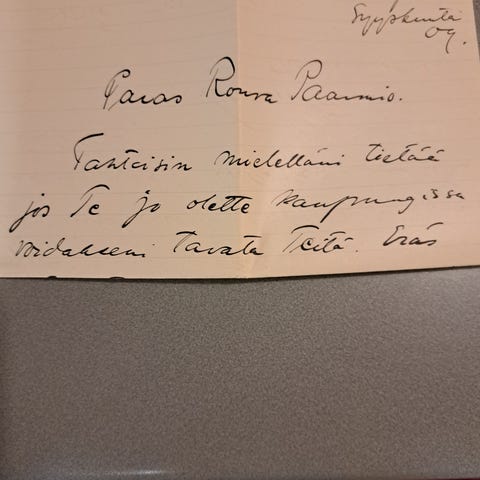 Syyskuuta
09.
Paras Rouva Paarmio.
Tahtoisin mielelläni tietää
jos Te jo olette kaupungissa
voidakseni tavata Teitä. Eräs